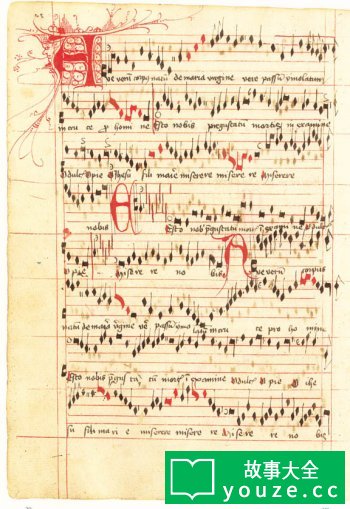 Ave veru corpus natu de maria virgine vere passu ymolatum
in cru ce p homi ne Esto nobis pregustatu mortis in examine
O dulcis O pie O Jhesu fili marie miserere misere re Miserere
nobis Esto nob pregustatu mor i O dulc
O pie Misere re no bis Ave veru corpus
natu de maria virgine ve passu ymo latu in cru ce pro ho mine
Esto nobis pregus ta tu mor i examine O dulc O pie O Jhe
su fili mari e miserere misere re Misere re no bis
故事大全
youze.cc